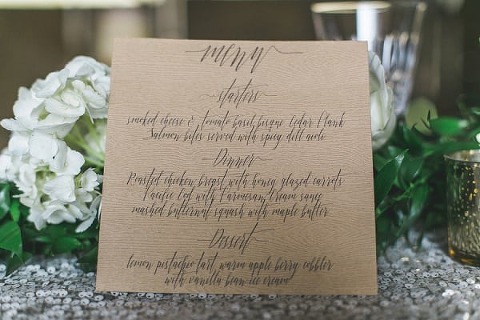 menu
starters
smoked cheese & tomato basil bisque Cedar Plank
Salmon bites served with spicy dill aioli
Dinner
Roasted chicken breast with honey glazed carrots
Pacific Cod with Parmesan Cream sauce
mashed butternut squash with maple butter
Dessert
lemon pistachio tart warm apple berry cobbler
with vanilla bean ice cream